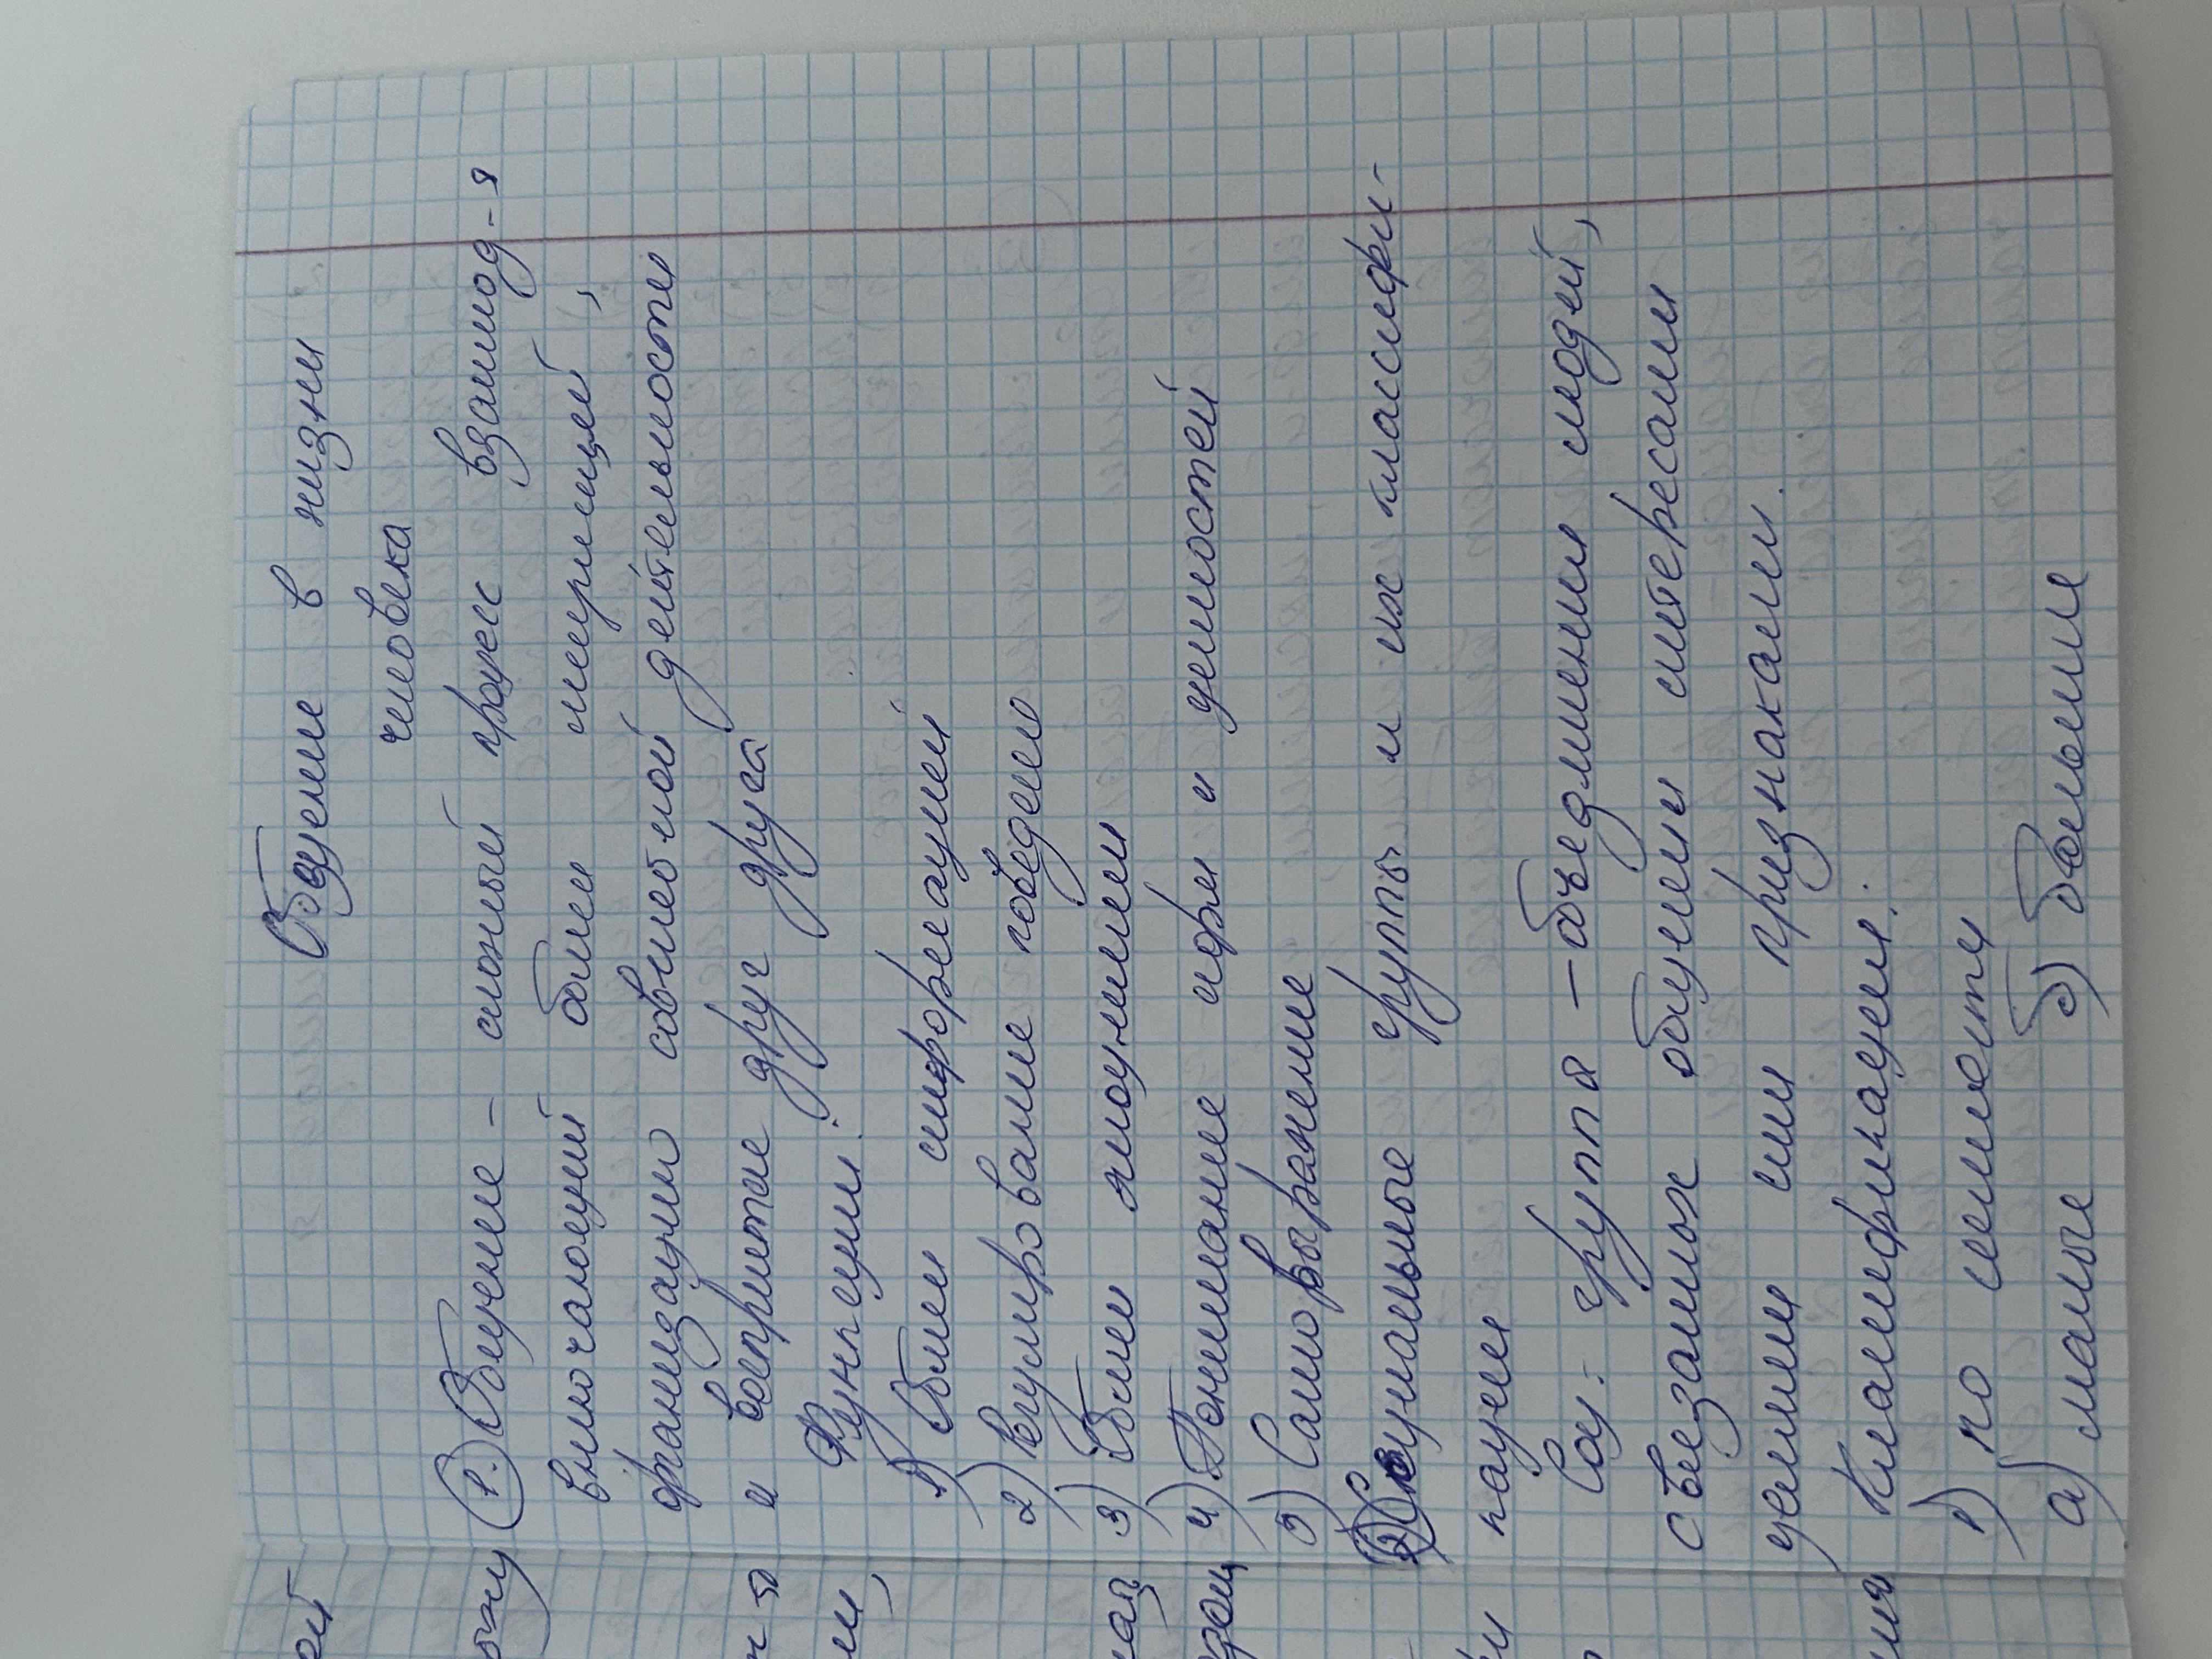 Общение в жизни
человека
1. Общение - сложный процесс взаимод-я
включающий обмен инсрмицией,
организацию совместной деительности
и восприятие друг друга
Функции:
1) Обмен информацией
2) Регулирование поведено
3) Обмен эмоциями
4) Понимание инфи и ценностей
5) Самовыражение
2. Социальные группы и их классифи-
кации
Соц. группа - объединении людей,
связанных общими интересами
целями или признаками.
Классификация:
1) по
а) малые б) большие